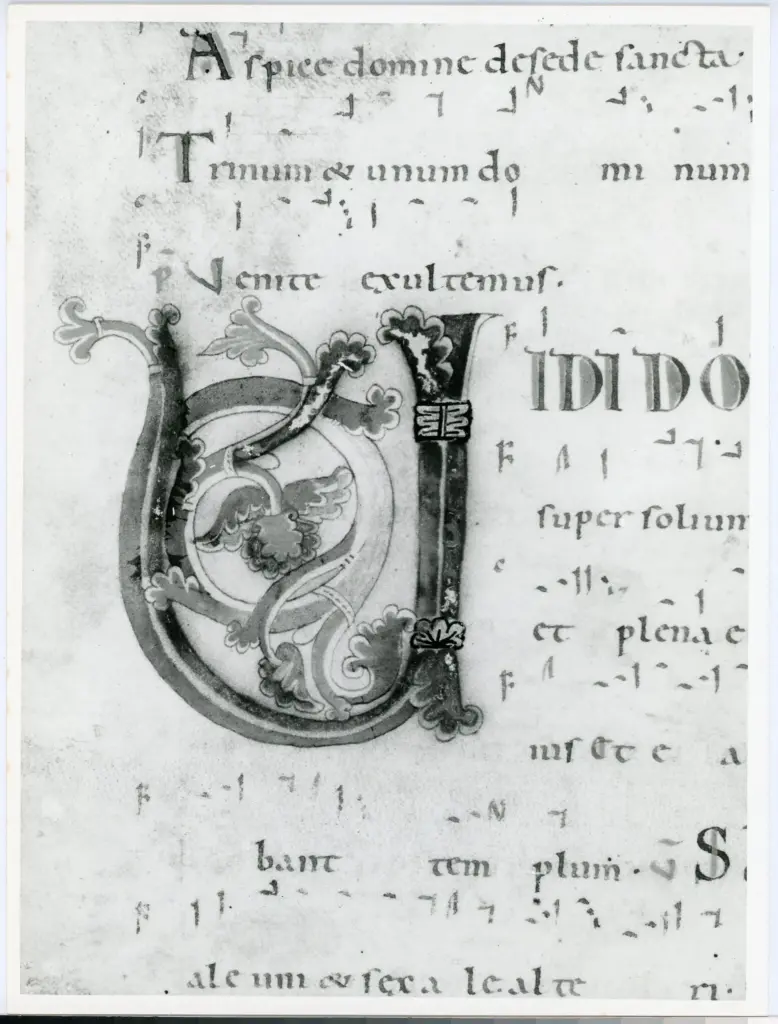 Aspice domine desede sancta.
Trinum & unum do mi num
Venite exultemus.
UIDI DO
super solium
et plena e
ius Et e a
bant tem plum. V S
ale uni & sex a le.al te ri.